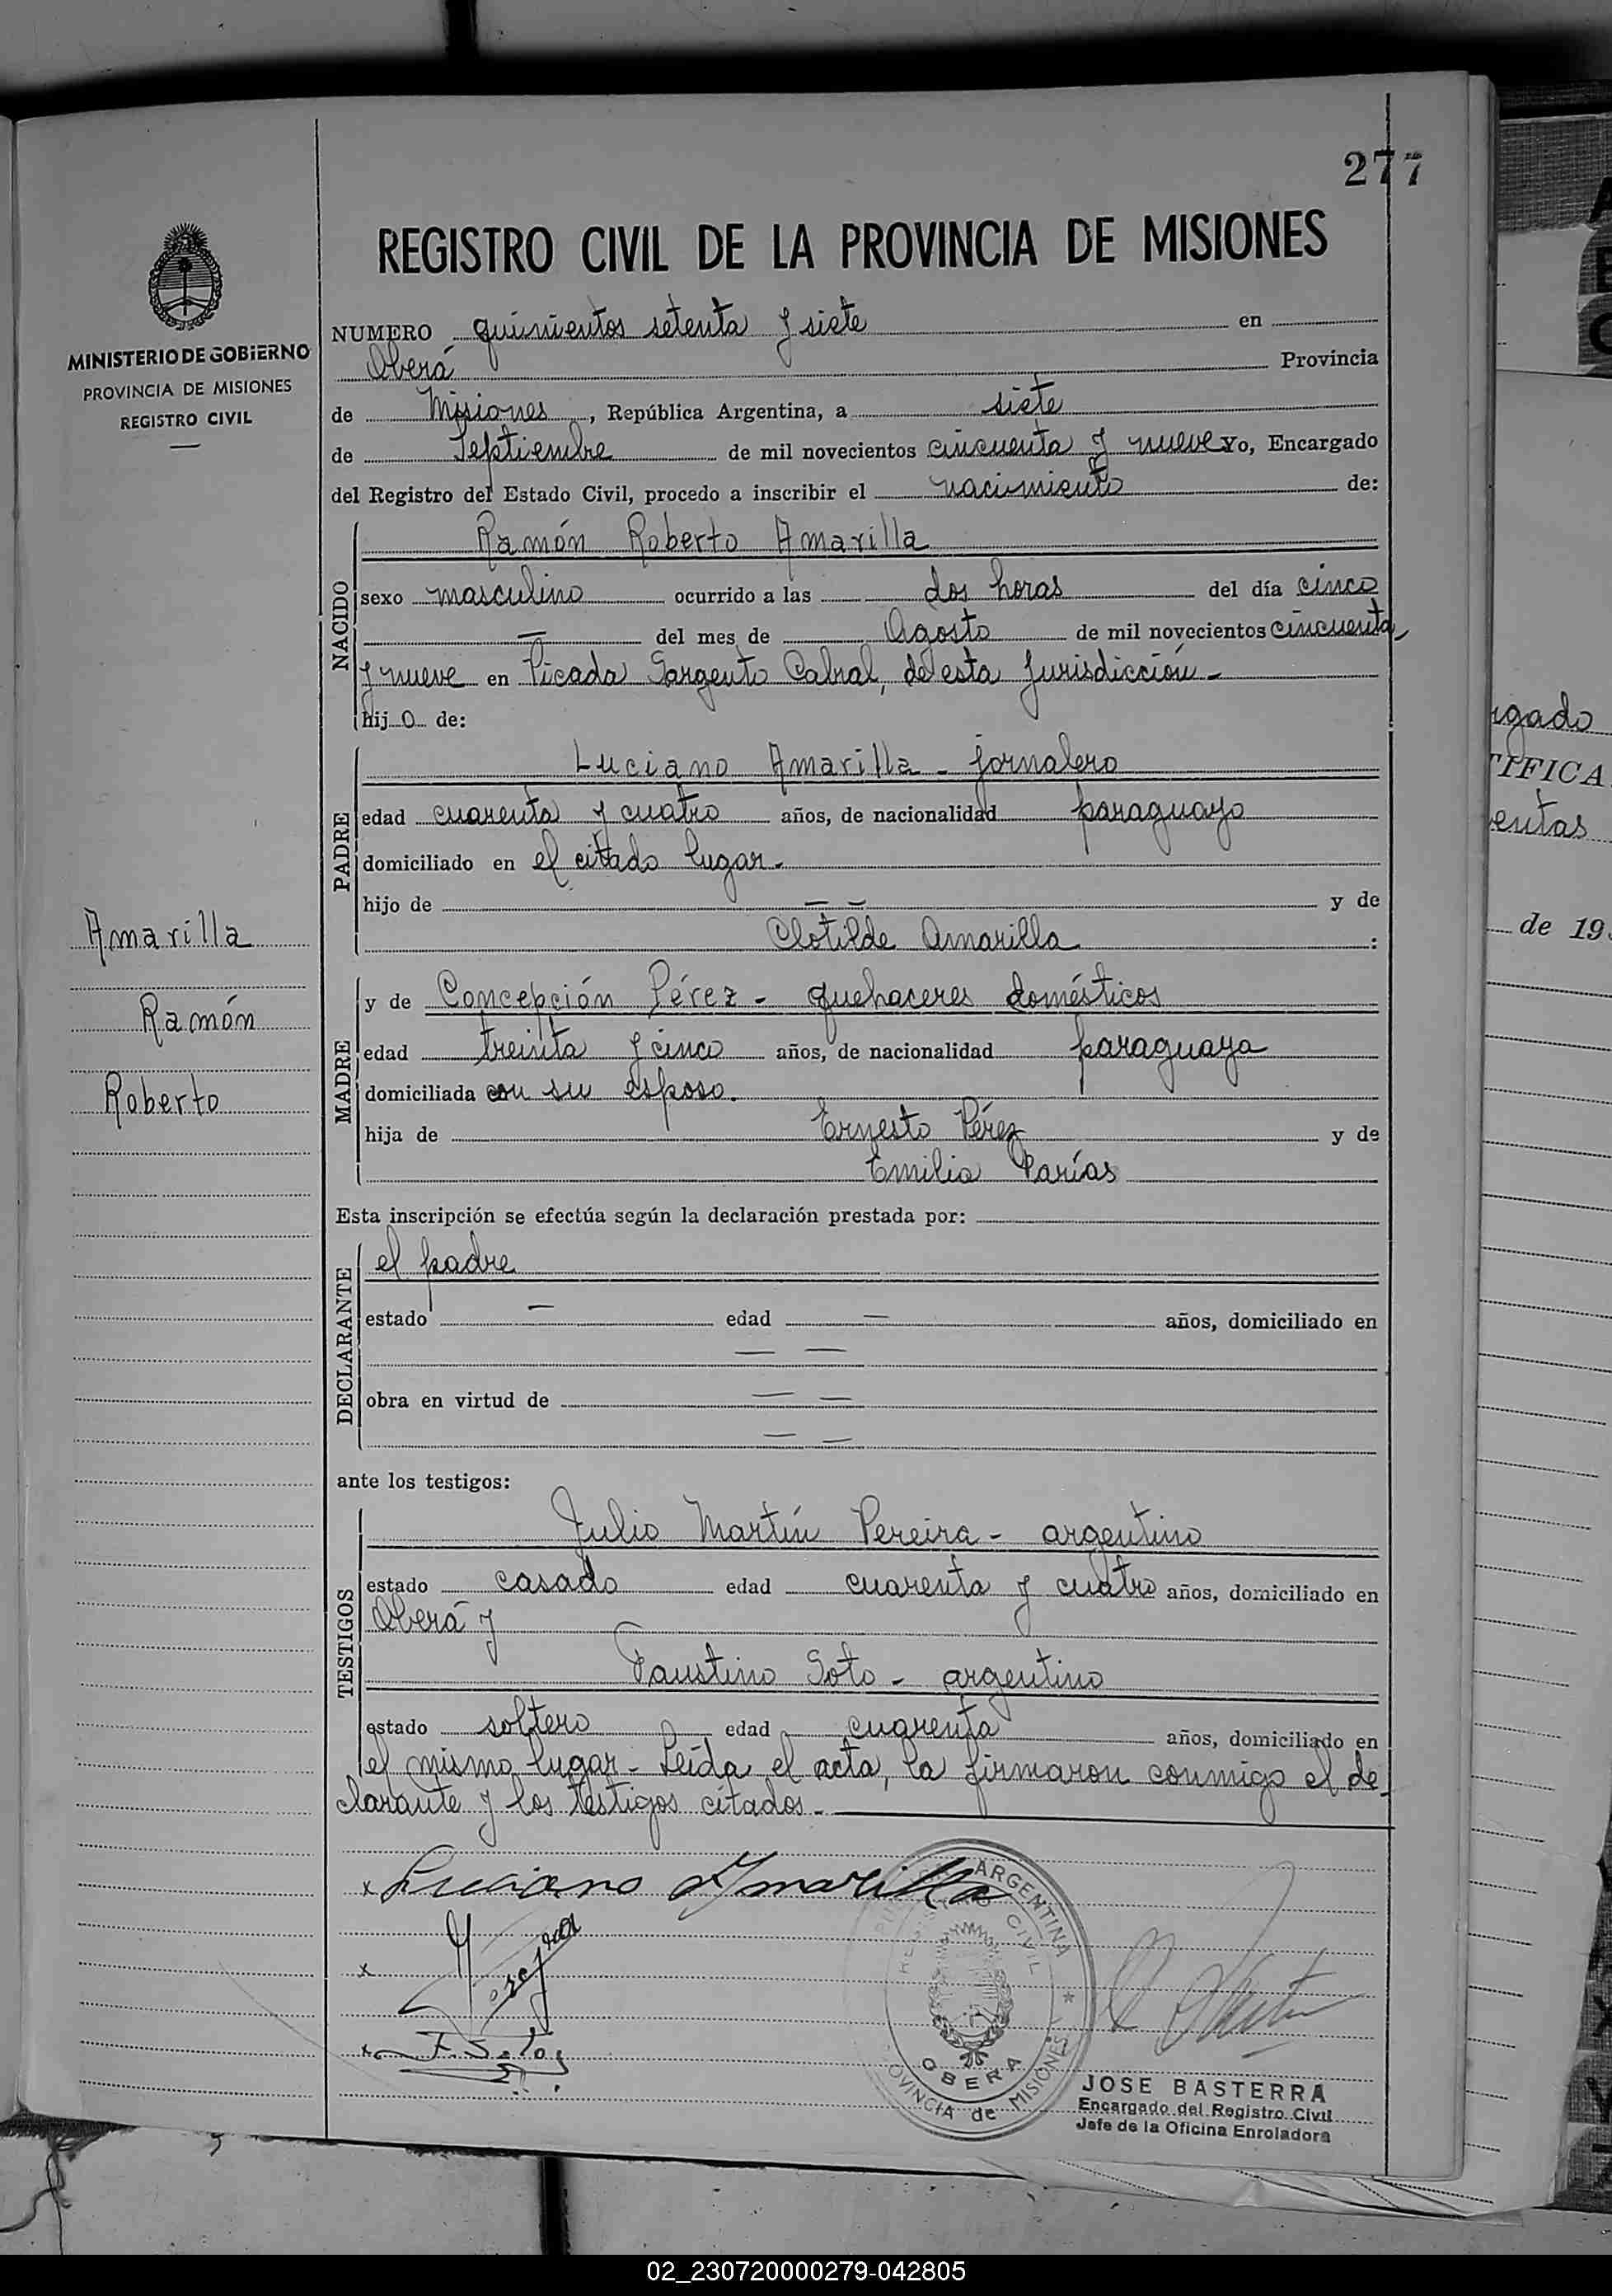 277
REGISTRO CIVIL DE LA PROVINCIA DE MISIONES
MINISTERIO DE GOBIERNO
PROVINCIA DE MISIONES
REGISTRO CIVIL
NUMERO quinientos setenta y siete en
Oberá Provincia
de Misiones, República Argentina, a siete
de Septiembre de mil novecientos cincuenta y nueve yo, Encargado
del Registro del Estado Civil, procedo a inscribir el nacimiento de:
NACIDO
Ramón Roberto Amarilla
sexo masculino ocurrido a las dos horas del día cinco
— del mes de Agosto de mil novecientos cincuenta
y nueve en Picada Sargento Cabral, de esta Jurisdicción -
hijo de:
PADRE
Luciano Amarilla - jornalero
edad cuarenta y cuatro años, de nacionalidad paraguayo
domiciliado en el citado lugar.
hijo de — — y de
Clotilde Amarilla :
Amarilla
Ramón
Roberto
MADRE
y de Concepción Pérez - quehaceres domésticos
edad treinta y cinco años, de nacionalidad paraguaya
domiciliada con su esposo.
hija de Ernesto Pérez y de
Emilia Farías
Esta inscripción se efectúa según la declaración prestada por:
DECLARANTE
el padre
estado — edad — años, domiciliado en
— —
obra en virtud de — —
— —
ante los testigos:
TESTIGOS
Julio Martín Pereira - argentino
estado casado edad cuarenta y cuatro años, domiciliado en
Oberá y
Faustino Soto - argentino
estado soltero edad cuarenta años, domiciliado en
el mismo lugar - Leída el acta, la firmaron conmigo el de-
clarante y los testigos citados -
x Luciano Amarilla
x
x F. Soto
ARGENTINA
REGISTRO CIVIL
OBERA
PROVINCIA de MISIONES
JOSE BASTERRA
Encargado del Registro Civil
Jefe de la Oficina Enroladora
de 19
02_230720000279-042805